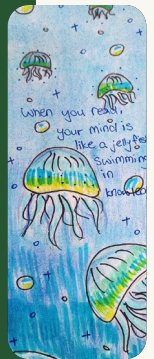 When you read,
your mind is
like a jellyfis
swimming
in
knowled